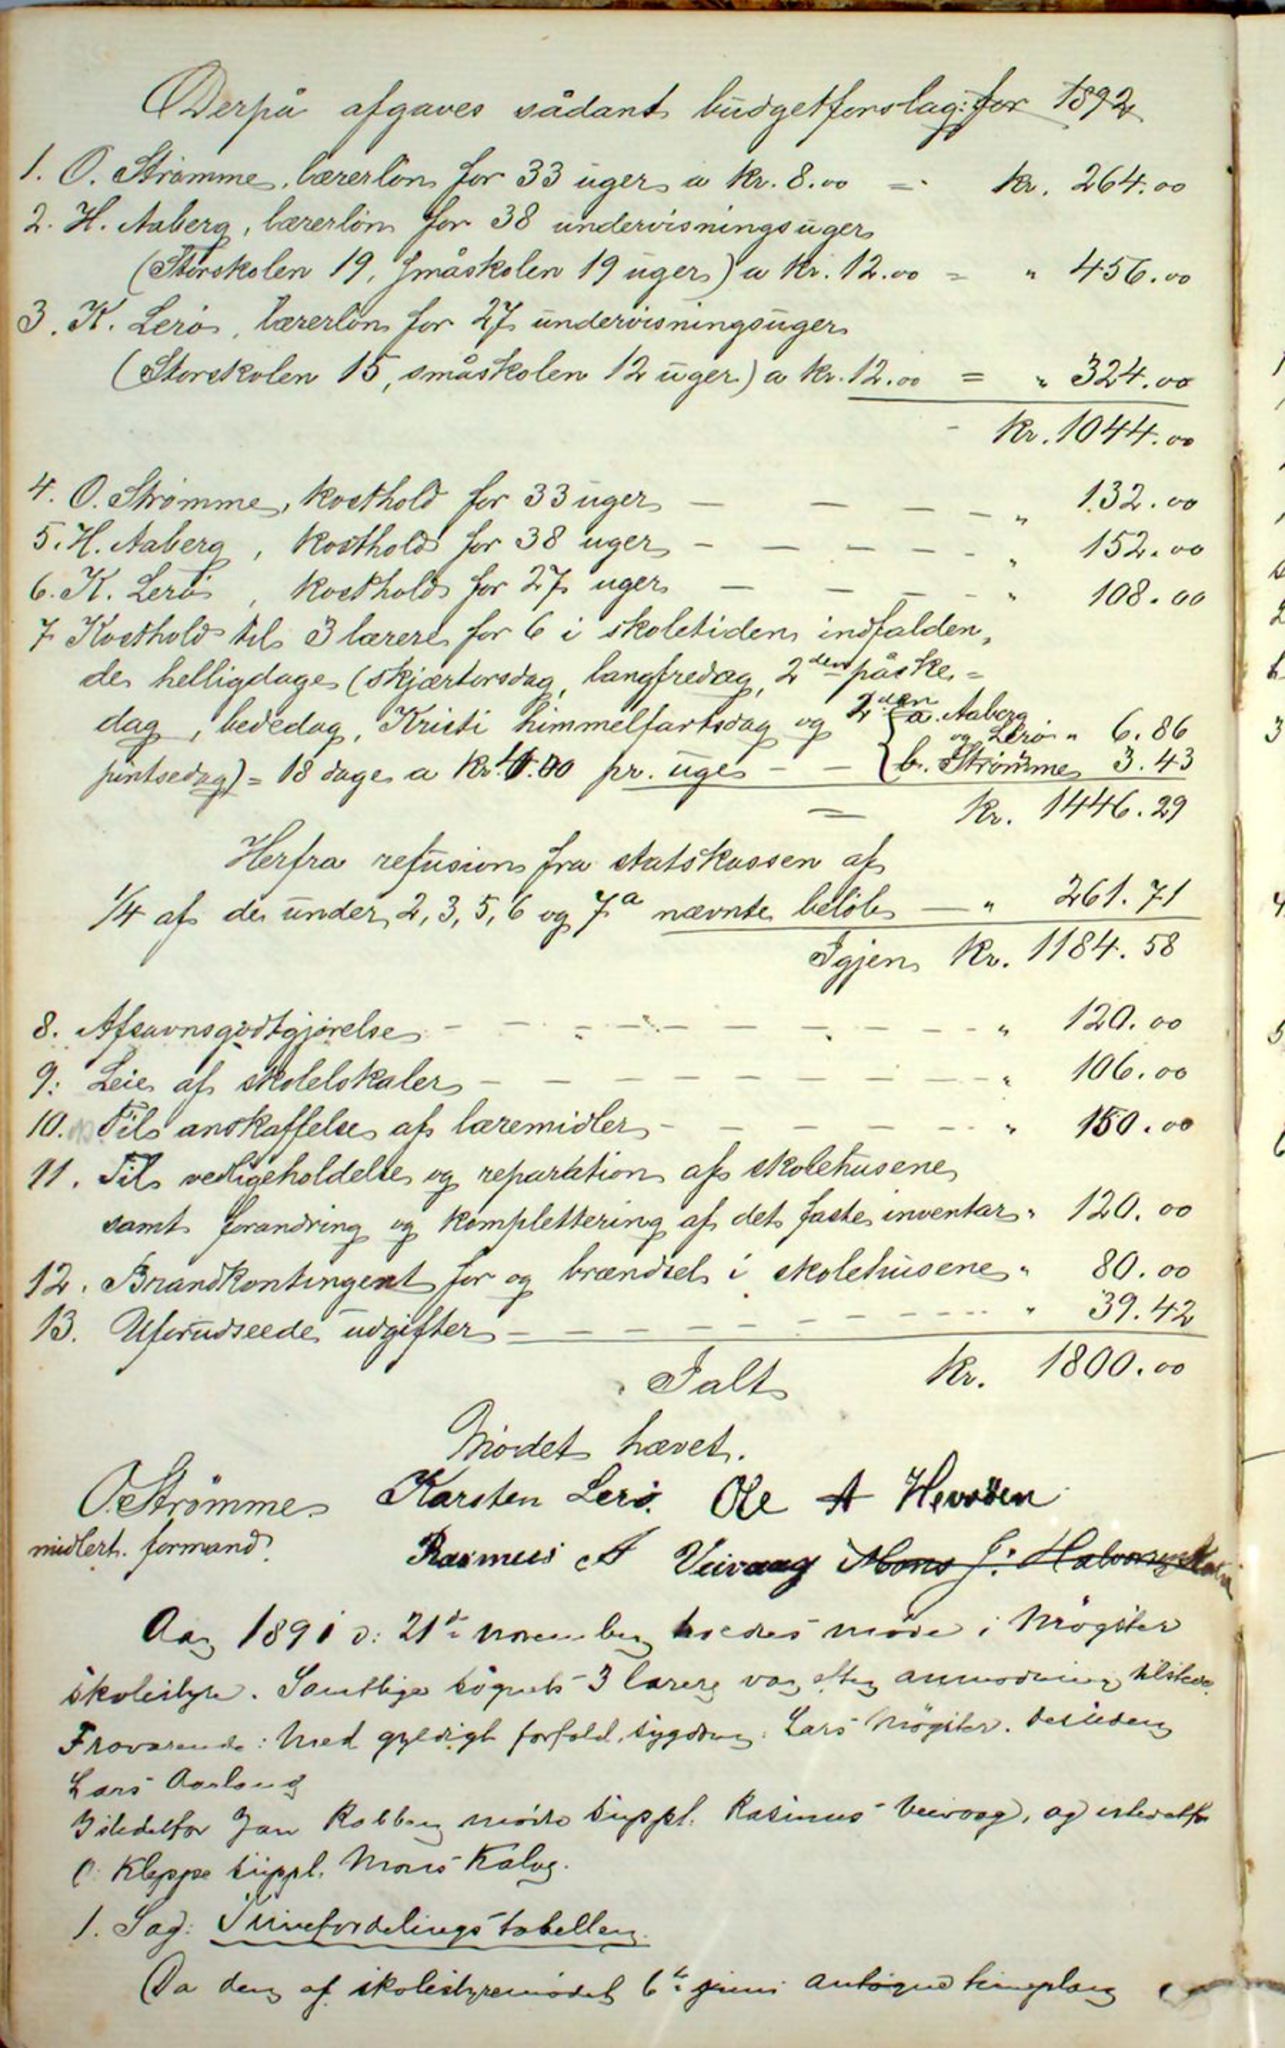 Derpå afgaves sådant budgetforslag: for 1892
1. O. Strømme, lærerløn for 33 uger a kr. 8.00 = kr. 264.00
2. H. Aaberg, lærerløn for 38 undervisningsuger
(Storskolen 19, småskolen 19 uger) a kr. 12.00 = " 456.00
3. K. Lerø, lærerløn for 27 undervisningsuger
(Storskolen 15, småskolen 12 uger) a kr. 12.00 = " 324.00
kr. 1044.00
4. O. Strømme, kosthold for 33 uger — — — — " 132.00
5. H. Aaberg, kosthold for 38 uger — — — — — " 152.00
6. K. Lerø, kosthold for 27 uger — — — — " 108.00
7. Kosthold til 3 lærere for 6 i skoletiden indfalden-
de helligdage (skjærtorsdag, langfredag, 2den påske-
dag, bededag, Kristi himmelfartsdag og 2den
a. Aaberg og Lerø " 6.86
pintsedag) = 18 dage a kr. 4.00 pr. uge — — b. Strømme 3.43
= kr. 1446.29
Herfra refusion fra statskassen af
1/4 af de under 2, 3, 5, 6 og 7a nævnte beløb — " 261.71
Igjen kr. 1184.58
8. Afsavnsgodtgjørelse — — — — — — — — " 120.00
9. Leie af skolelokaler — — — — — — — — " 106.00
10. Til anskaffelse af læremidler — — — — — — " 150.00
11. Til vedligeholdelse og reparation af skolehusene
samt forandring og komplettering af det faste inventar " 120.00
12. Brandkontingent for og brændsel i skolehusene " 80.00
13. Uforudseede udgifter — — — — — — — — " 39.42
Ialt kr. 1800.00
Mødet hævet.
O. Strømme Karsten Lerø. Ole A Hevrøen
midlert. formand. Rasmus A Veivaag Mons J. Halvorsen
Aar 1891 d: 21de november holdtes møde i Møgster
skolestyre. Samtlige sognets 3 lærere var efter anmodning tilstede.
Fraværende: Med gyldigt forfald, sygdom: Lars Møgster. Desuden
Lars Aarland
Istedetfor Jan Rabben mødte suppl. Rasmus Veivaag, og istedetfor
O. Kleppe suppl. Mons Kalvø.
1. Sag: Timefordelingstabellen.
Da den af skolestyremødet 6te juni antagne timeplan